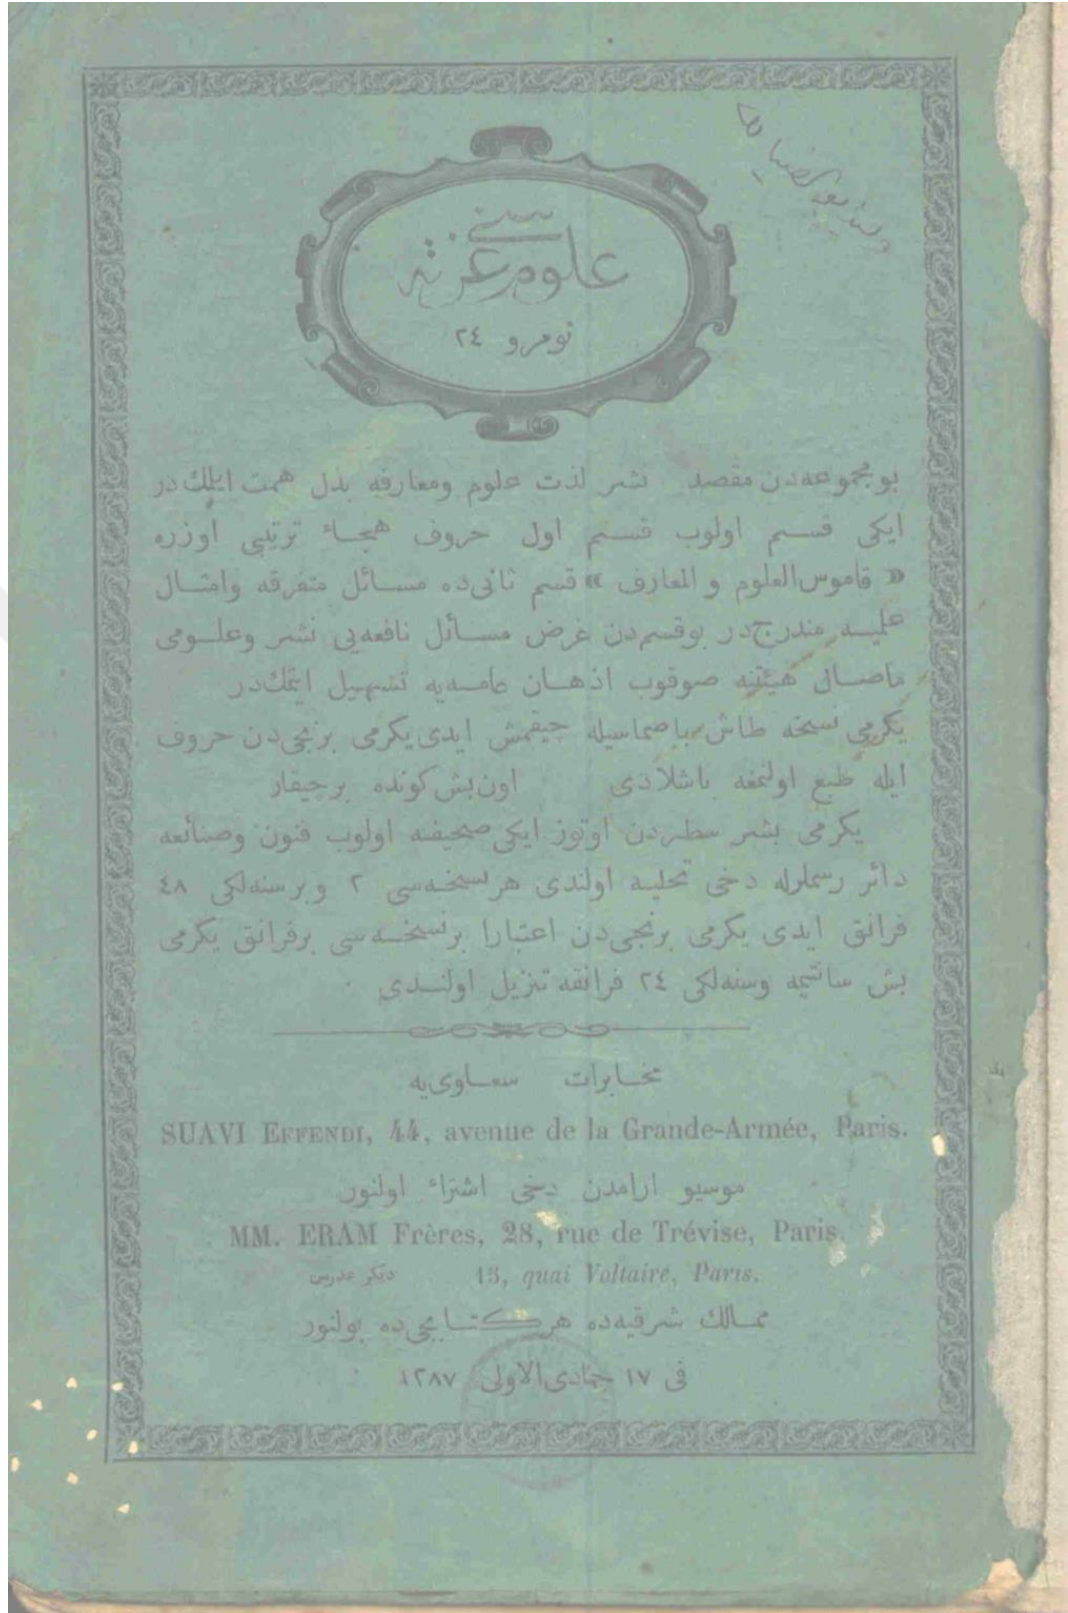 علوم غزته سی
نومرو ٢٤
بو مجموعه‌دن مقصد نشر لذت علوم ومعارفه بذل همت ایلك در
ایکی قسم اولوب قسم اول حروف هجاء ترتیبی اوزره
« قاموس‌العلوم و المعارف » قسم ثانی‌ده مسائل متفرقه وامثال
علمیه مندرج‌در بوقسم‌دن غرض مسائل نافعه‌یی نشر وعلومی
ماصال هیئتنه صوقوب اذهان عامه‌یه تسهیل ایتمك‌در
یکرمی نسخه طاش باصماسیله چیقمش ایدی یکرمی برنجی‌دن حروف
ایله طبع اولنمغه باشلادی اون‌بش کونده برچیقار
یکرمی بشر سطردن اوتوز ایکی صحیفه اولوب فنون وصنائعه
دائر رسملرله دخی تحلیه اولندی هر نسخه‌سی ٢ وبر سنه‌لکی ٤٨
فرانق ایدی یکرمی برنجی‌دن اعتبارا برنسخه‌سی برفرانق یکرمی
بش سانتیمه وسنه‌لکی ٢٤ فرانقه تنزیل اولندی
مخابرات سعاوی‌یه
SUAVI EFFENDI, 44, avenue de la Grande-Armée, Paris.
موسیو ارامدن دخی اشتراء اولنور
MM. ERAM Frères, 28, rue de Trévise, Paris.
دیکر عدرس 15, quai Voltaire, Paris.
ممالك شرقیه‌ده هر کتابجی‌ده بولنور
فی ١٧ جمادی‌الاولی ١٢٨٧